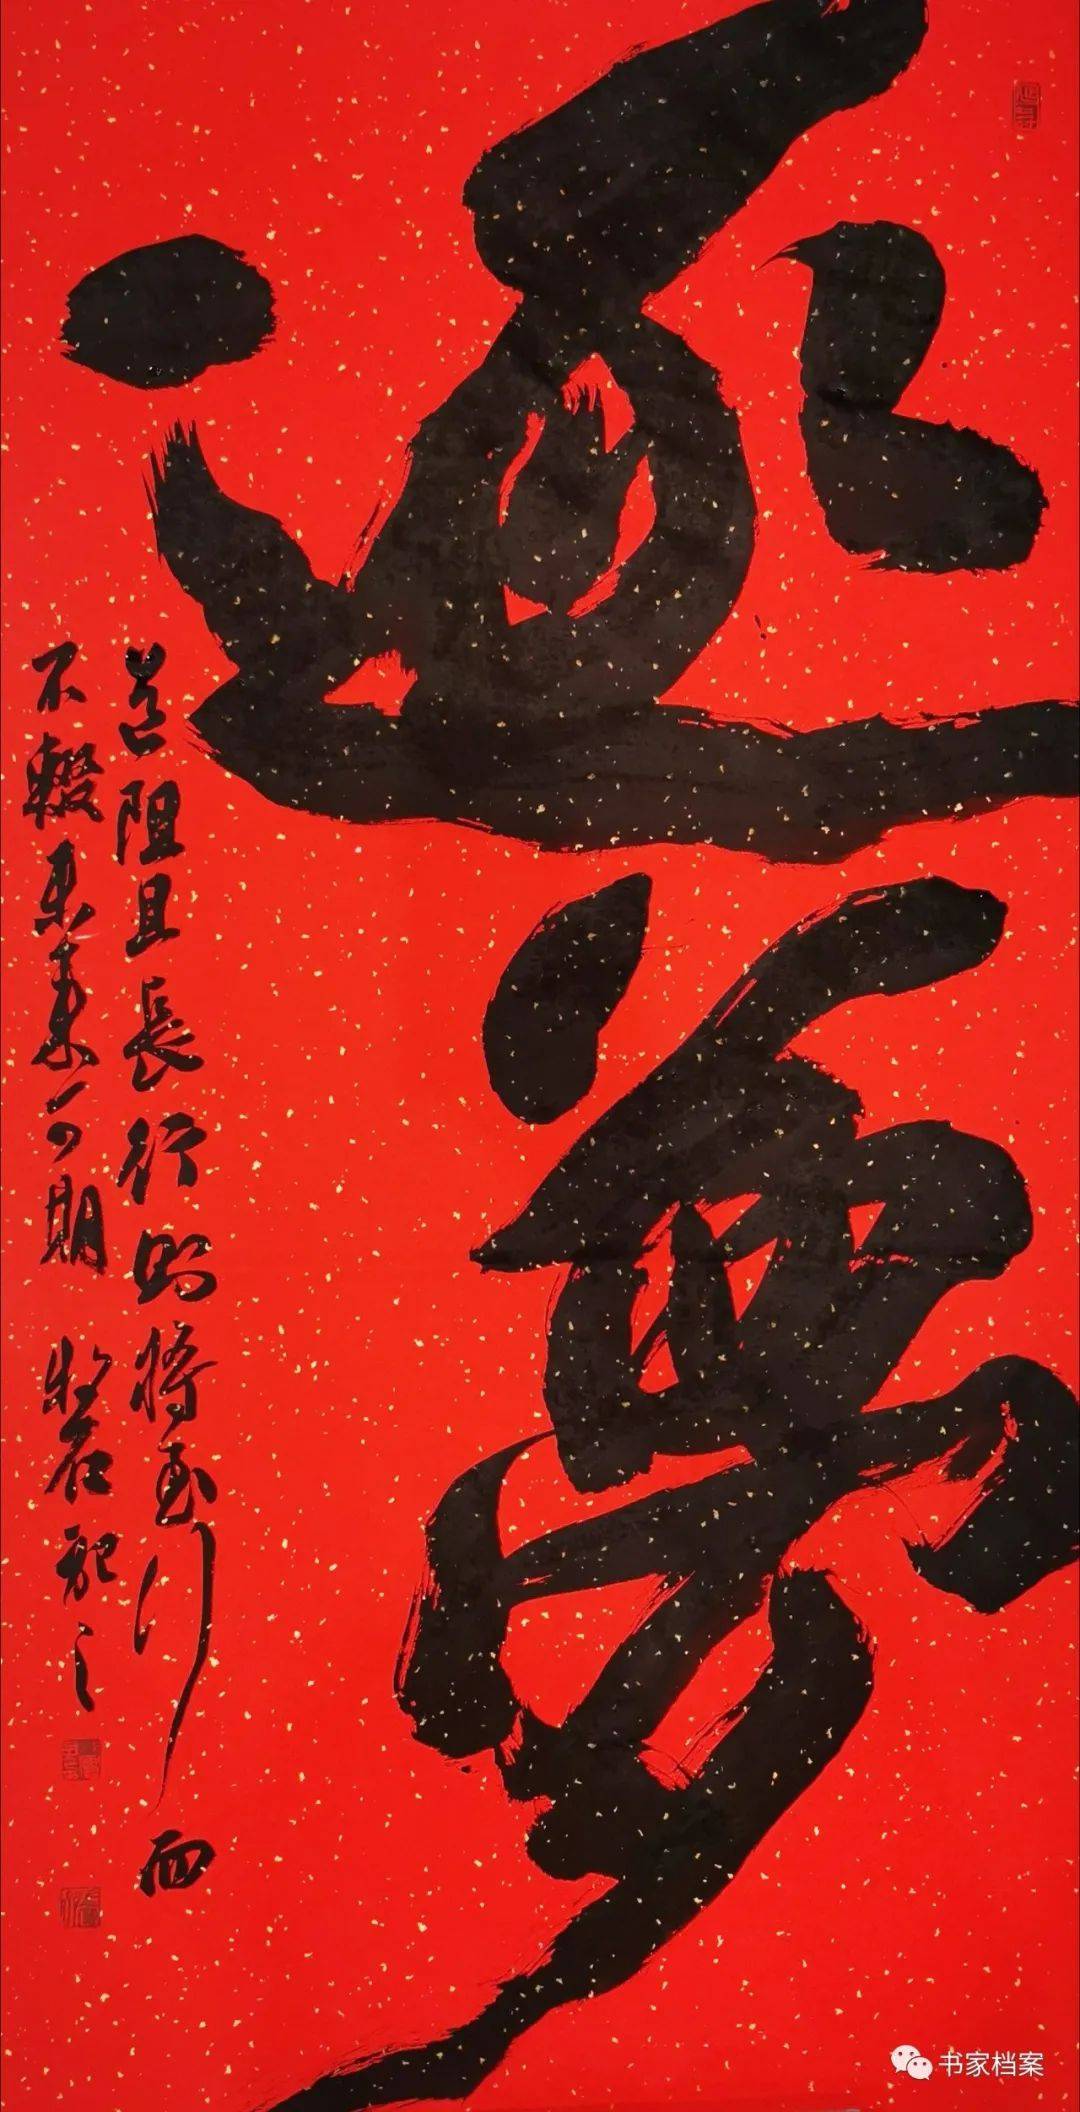 逐夢
道阻且長行則將至行而
不輟未来可期 磐石記之
书家档案